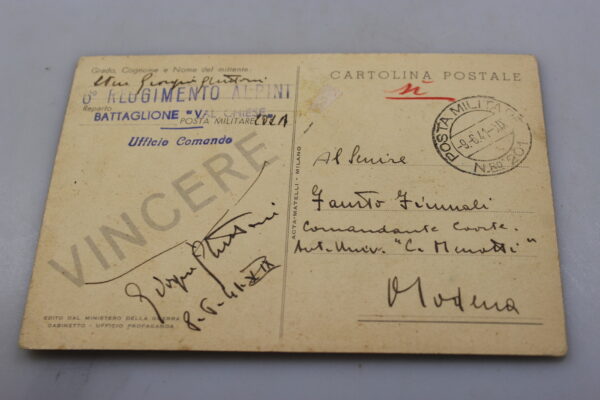 Grado, Cognome e Nome del mittente
Giorgio
6º REGGIMENTO ALPINI
Reparto
BATTAGLIONE "VAL CHIESE"
POSTA MILITARE 202A
Ufficio Comando
VINCERE
8-6-41-XIX
EDITO DAL MINISTERO DELLA GUERRA
GABINETTO - UFFICIO PROPAGANDA
ACTA-MATELLI - MILANO
CARTOLINA POSTALE
sì
POSTA MILITARE
-9.6.41.
N.ro 201
Fausto
Comandante Coorte
Aut. Univ. "C. Menotti"
Modena